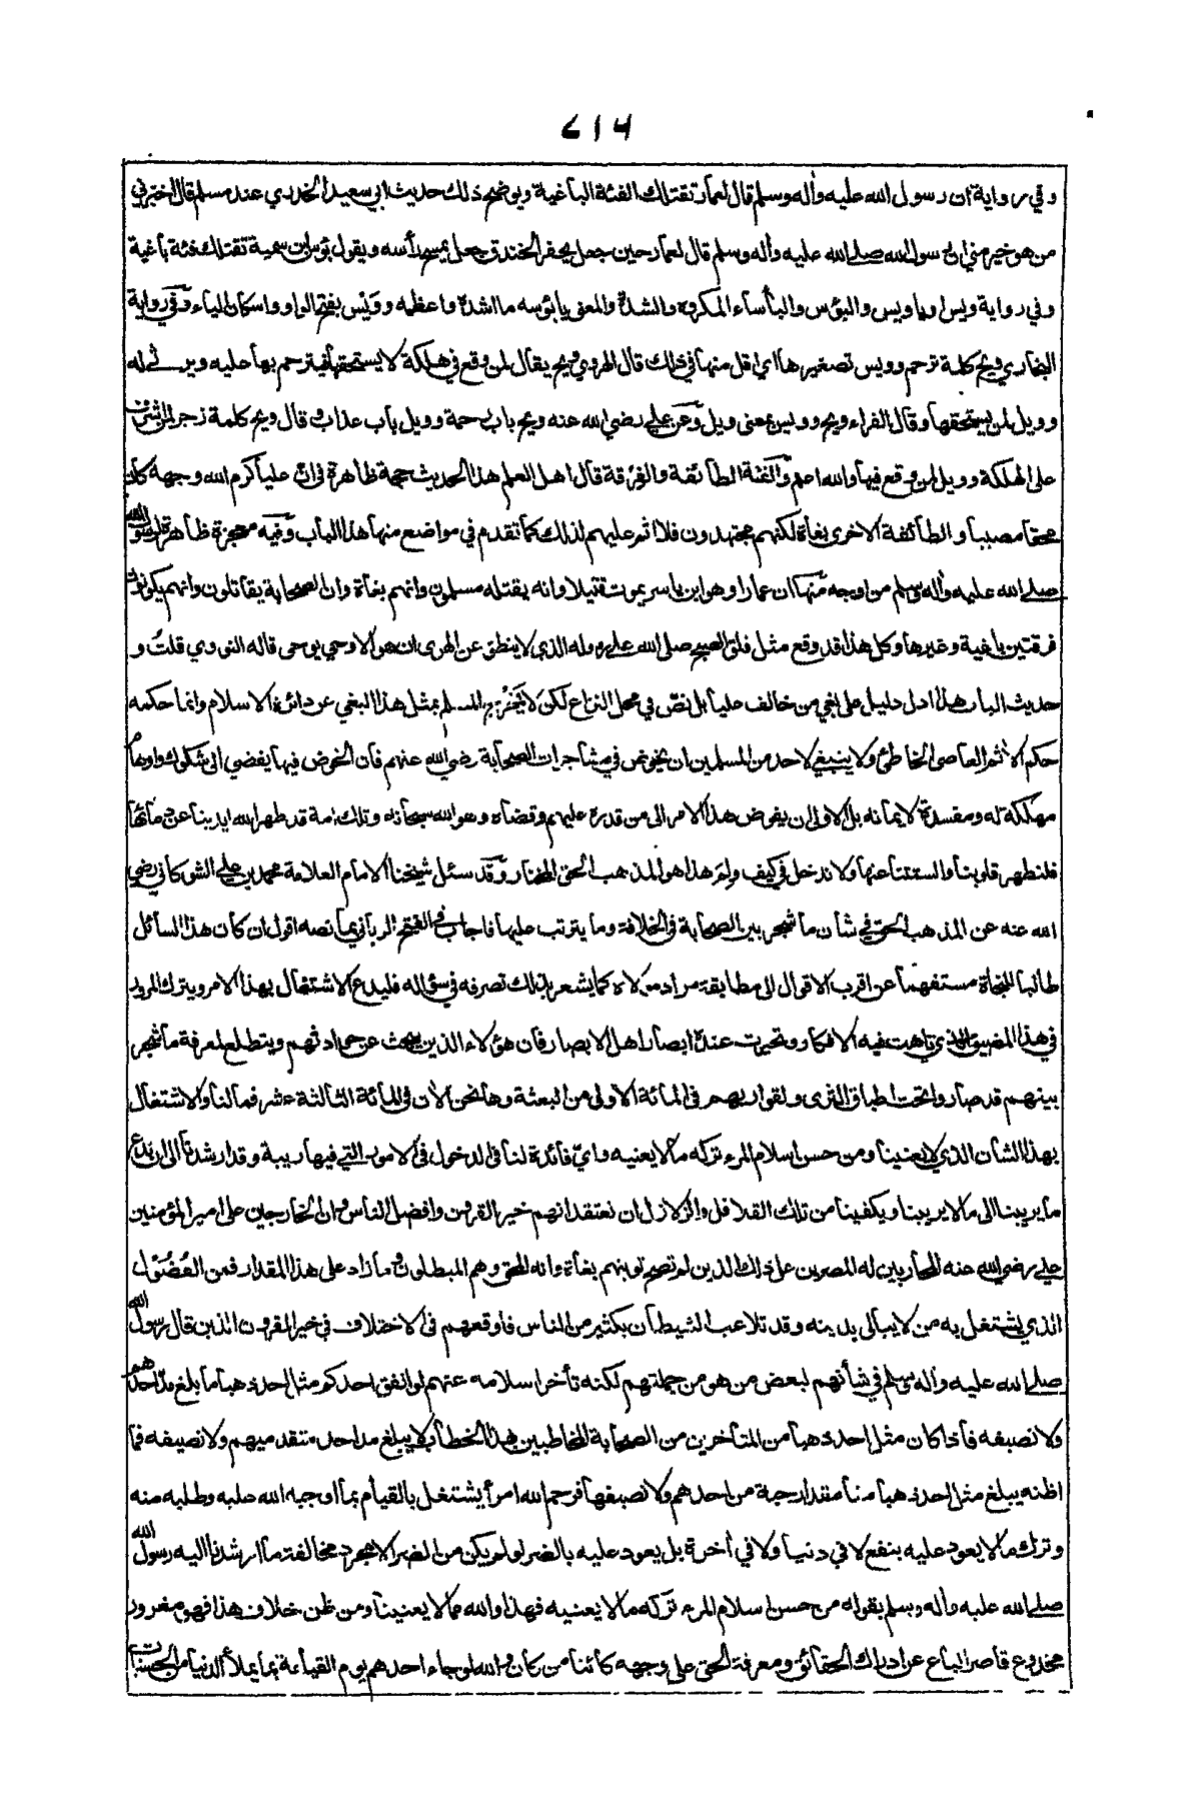 ٧١٤
وفي رواية ان رسول الله عليه واله وسلم قال لعمار تقتلك الفئة الباغية ويوضح ذلك حديث ابي سعيد الخدري عند مسلم قال اخبرني
من هو خير مني ان رسول الله صلى الله عليه واله وسلم قال لعمار حين جعل يحفر الخندق جعل يمسح رأسه ويقول بؤس ابن سمية تقتلك فئة باغية
وفي رواية ويس او يا ويس والبؤس والبأساء المكروه والشدة والمعنى يا بؤسه ما اشده واعظمه ووَيْس بفتح الواو واسكان الياء وفي رواية
البخاري ويح كلمة ترحم وويس تصغيرها اي اقل منها في ذلك قال الهروي ويح يقال لمن وقع في هلكة لا يستحقها فيترحم بها عليه ويرثى له
وويل لمن يستحقها وقال الفراء ويح وويس بمعنى ويل وعن علي رضي الله عنه ويح باب رحمة وويل باب عذاب وقال ويح كلمة زجر لمن اشرف
على الهلكة وويل لمن وقع فيها والله اعلم والفئة الطائفة والفرقة قال اهل العلم هذا الحديث حجة ظاهرة في ان عليا كرم الله وجهه كان
محقا مصيبا والطائفة الاخرى بغاة لكنهم مجتهدون فلا اثم عليهم لذلك كما تقدم في مواضع منها هذا الباب وفيه معجزة ظاهرة لرسول الله
صلى الله عليه واله وسلم من اوجه منها ان عمارا وهو ابن ياسر يموت قتيلا وانه يقتله مسلمون وانهم بغاة وان الصحابة يقاتلون وانهم يكونون
فرقتين باغية وغيرها وكل هذا قد وقع مثل فلق الصبح صلى الله على رسوله الذي لا ينطق عن الهوى ان هو الا وحي يوحى قاله النووي قلت و
حديث الباب هذا ادل دليل على بغي من خالف عليا بل نص في محل النزاع لكن لا يَخرُج المسلم بمثل هذا البغي عن دائرة الاسلام وانما حكمه
حكم الاثم العاصي الخاطئ ولا ينبغي لاحد من المسلمين ان يخوض في مشاجرات الصحابة رضي الله عنهم فان الخوض فيها يفضي الى شكوك واوهام
مهلكة له ومفسدة لايمانه بل الاولى ان يفوض هذا الامر الى من قدره عليهم وقضاه وهو الله سبحانه وتلك امة قد طهر الله ايدينا عن دمائها
فلنطهر قلوبنا والسنتنا عنها ولا ندخل في كيف ولم هذا هو المذهب الحق المختار وقد سئل شيخنا الامام العلامة محمد بن علي الشوكاني رضي
الله عنه عن المذهب الحق في شأن ما شجر بين الصحابة في الخلافة وما يترتب عليها فاجاب في الفتح الرباني بما نصه اقول ان كان هذا السائل
طالبا للنجاة مستفهما عن اقرب الاقوال الى مطابقة مراد مولاه كما يشعر بذلك تصرفه في سؤاله فليدع الاشتغال بهذا الامر ويترك المرور
في هذا المضيق الذي تاهت فيه الافكار وتحيرت عنده ابصار اهل الابصار فان هؤلاء الذين يبحث عن حوادثهم ويتطلع لمعرفة ما شجر
بينهم قد صاروا تحت اطباق الثرى ولقوا ربهم في المائة الاولى من البعثة وها نحن الان في المائة الثالثة عشر فما لنا والاشتغال
بهذا الشان الذي لا يعنينا ومن حسن اسلام المرء تركه ما لا يعنيه واي فائدة لنا في الدخول في الامور التي فيها ريبة وقد ارشدنا الى ان ندع
ما يريبنا الى ما لا يريبنا ويكفينا من تلك القلاقل والزلازل ان نعتقد انهم خير القرون وافضل الناس وان الخارجين على امير المؤمنين
علي رضي الله عنه المحاربين له المصرين على ذلك الذين لم تصح توبتهم بغاة وانه المحق وهم المبطلون وما زاد على هذا المقدار فمن الفُضُول
الذي يشتغل به من لا يبالي بدينه وقد تلاعب الشيطان بكثير من الناس فاوقعهم في الاختلاف في خير القرون الذين قال رسول الله
صلى الله عليه واله وسلم في شأنهم لبعض من هو من جملتهم لكنه تأخر اسلامه عنهم لو انفق احدكم مثل احد ذهبا ما بلغ مد احدهم
ولا نصيفه فاذا كان مثل احد ذهبا من المتأخرين من الصحابة المخاطبين بهذا الخطاب لا يبلغ مد احد متقدميهم ولا نصيفه فما
اظنه يبلغ مثل احد ذهبا منا مقدار حبة من احدهم ولا نصيفها فرحم الله امرأ يشتغل بالقيام بما اوجبه الله عليه وطلبه منه
وترك ما لا يعود عليه بنفع لا في دنيا ولا في اخرة بل يعود عليه بالضر لو لم يكن من الضر الا مجرد مخالفة ما ارشدنا اليه رسول الله
صلى الله عليه واله وسلم بقوله من حسن اسلام المرء تركه ما لا يعنيه فهذا والله مما لا يعنينا ومن ظن خلاف هذا فهو مغرور
مخدوع قاصر الباع عن ادراك الحقائق ومعرفة الحق على وجهه كائنا من كان والله لو جاء احدهم يوم القيامة بما يملأ الدنيا من الحسنات